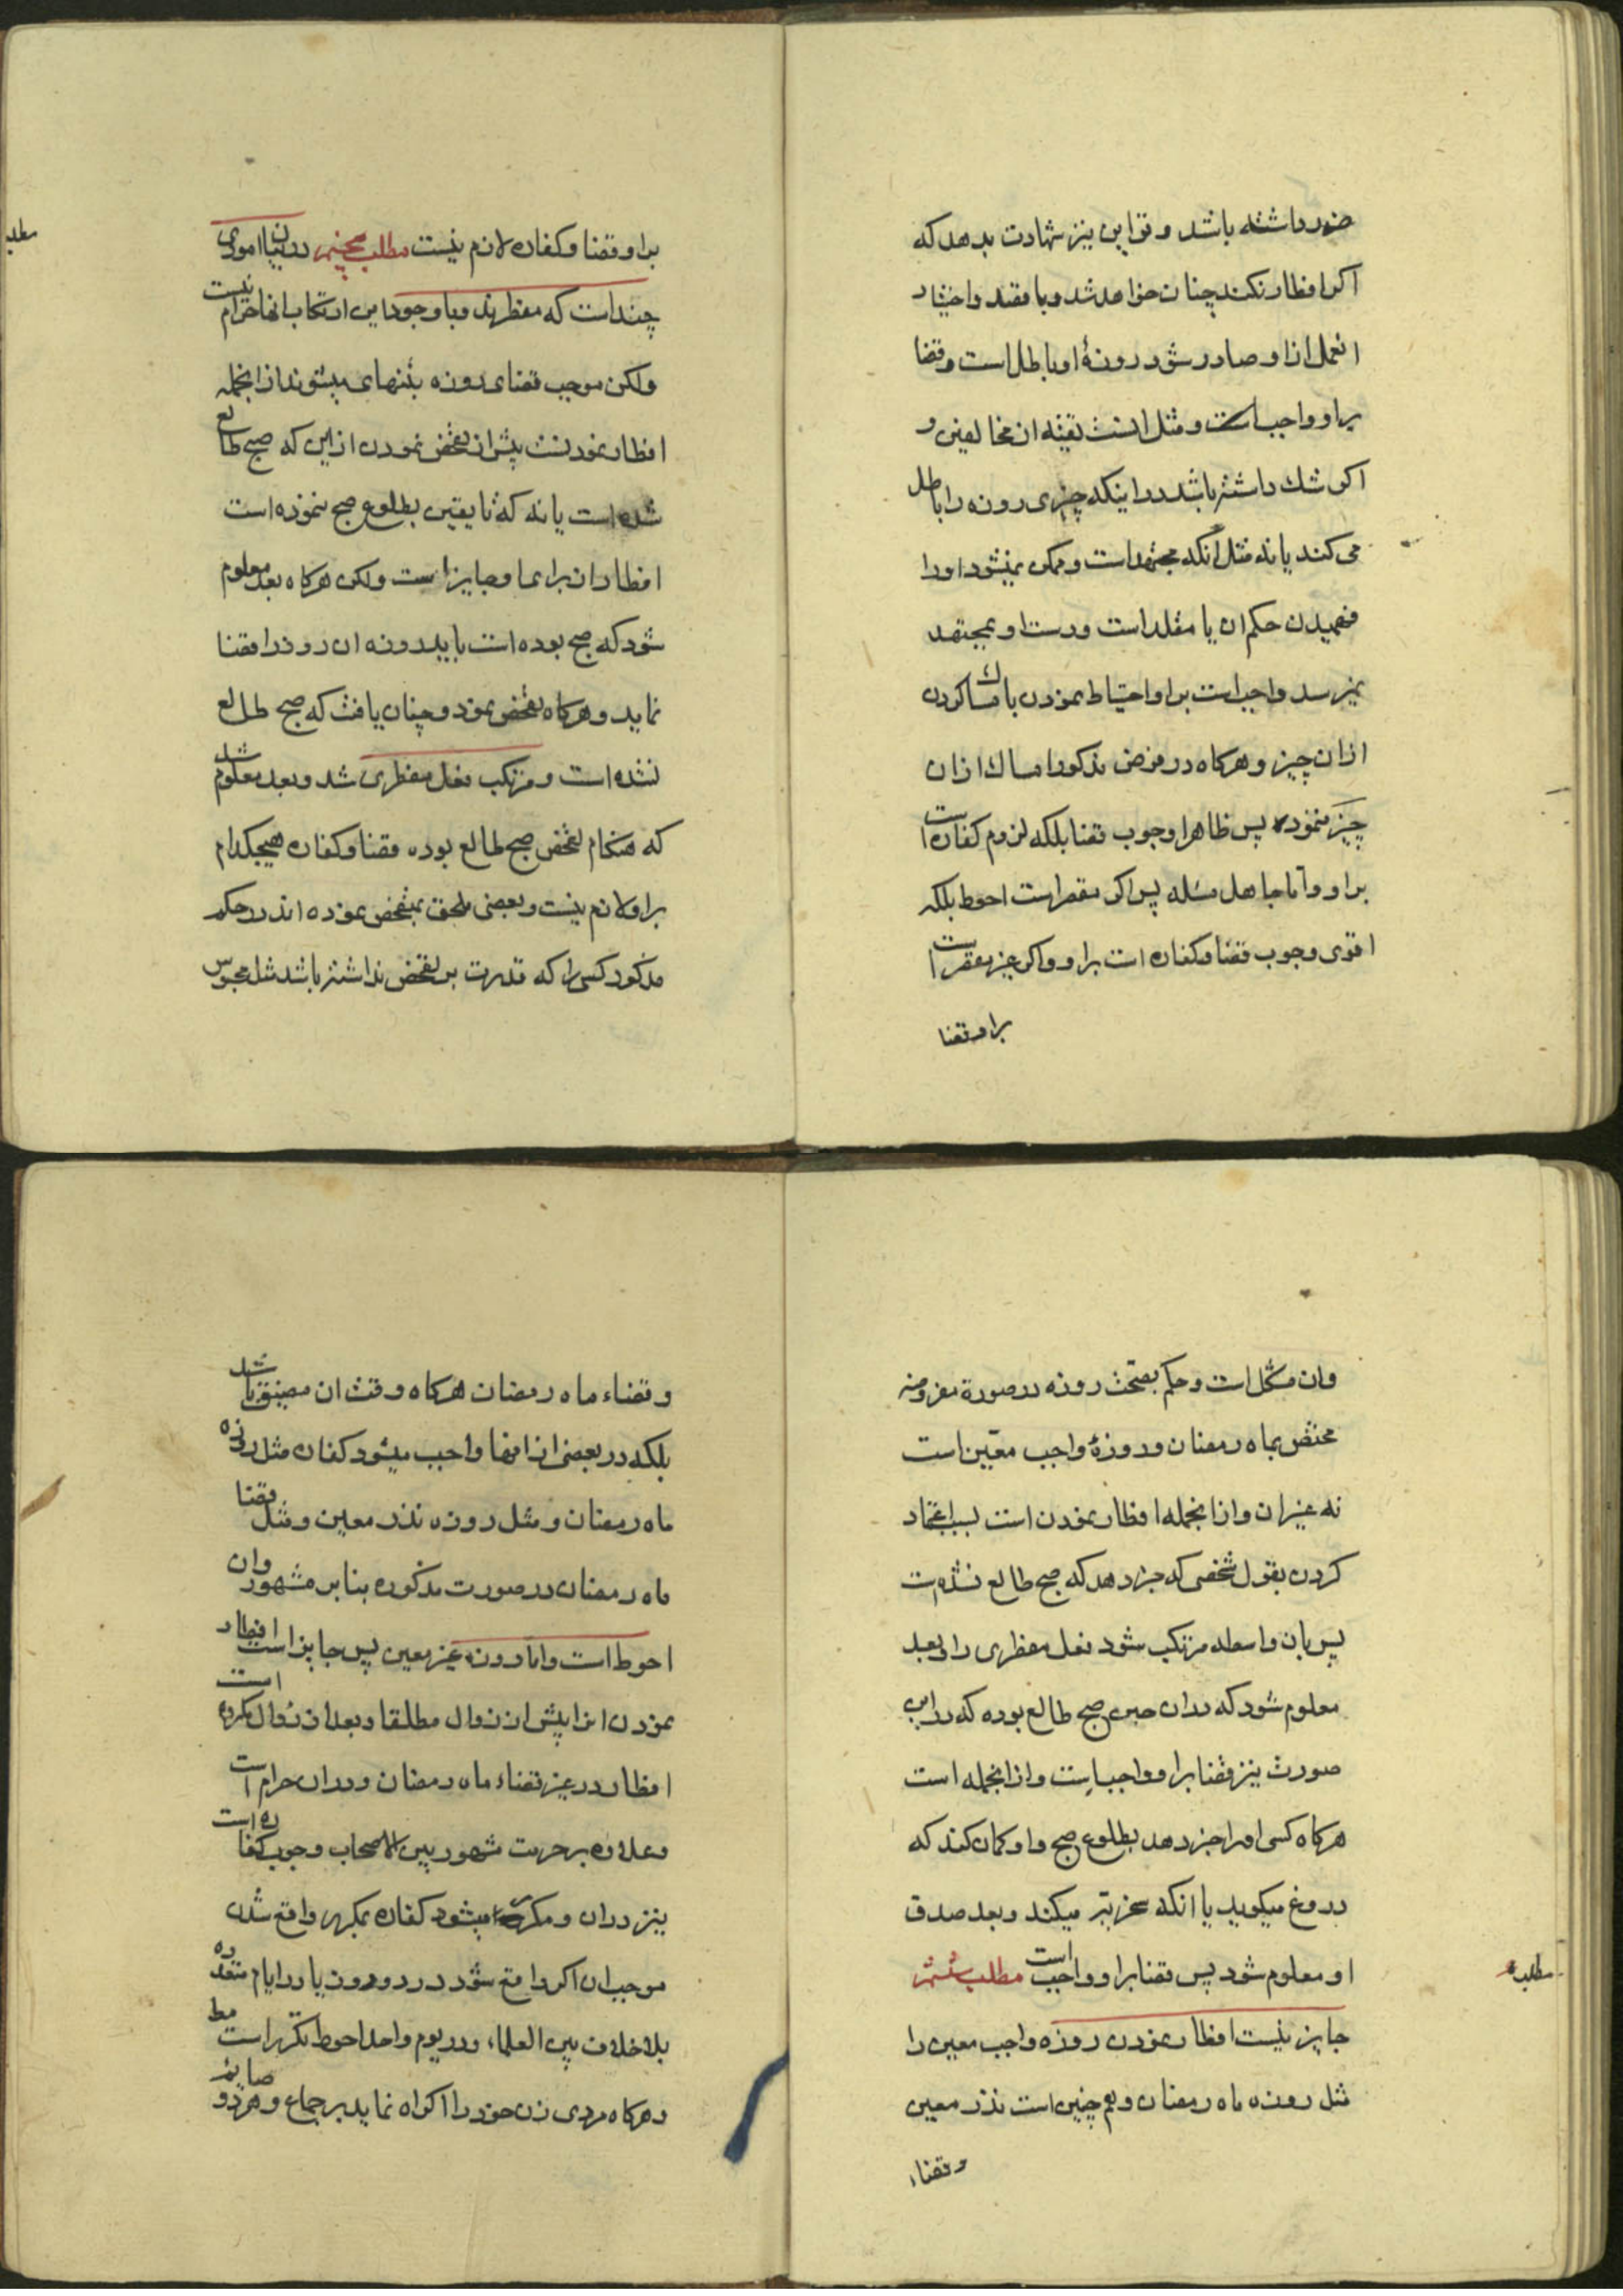 ضرر داشته باشد و قراین نیز شهادت بدهد که
اگر افطار نکند چنان خواهد شد و با قصد و اختیار
انعمل از او صادر شود روزهٔ او باطل است و قضا
بر او واجب است و مثل اینست تقیه از مخالفین و
اگر شک داشته باشد در اینکه چیزی روزه را باطل
می کند یا نه مثل آنکه مجتهد است و ممکن نمیشود او را
فهمیدن حکم ان یا مقلد است و دست او بمجتهد
نمیرسد واجبست بر او احتیاط نمودن بامساک کردن
از ان چیز و هرگاه در فرض مذکور امساک از ان
چیز ننموده پس ظاهرا وجوب قضا بلکه لزوم کفاره است
بر او و اما جاهل مسئله پس اگر مقصر است احوط بلکه
اقوی وجوب قضا و کفاره است بر او و اگر غیر مقصر است
بر او قضا
بر او قضا و کفاره لازم نیست مطلب پنجم در بیان اموری
چند است که مفطرند و با وجود این ارتکاب انها حرام نیست
ولکن موجب قضای روزه بتنهای میشوند از انجمله
افطار نمودنست پیش از تفحص نمودن از این که صبح طالع
شده است یا نه که تا یقین بطلوع صبح ننموده است
افطار ان برای او جایز است ولکن هرگاه بعد معلوم
شود که صبح بوده است باید روزه ان روز را قضا
نماید و هرگاه تفحص نمود و چنان یافت که صبح طالع
نشده است و مرتکب فعل مفطری شد و بعد معلوم شد
که هنگام تفحص صبح طالع بوده قضا و کفاره هیچکدام
بر او لازم نیست و بعضی ملحق بمتفحص نموده اند در حکم
مذکور کسی را که قدرت بر تفحص نداشته باشد مثل محبوس
مطلب
وان مشکل است و حکم بصحت روزه در صورة مفروضه
مختص بماه رمضان و روزهٔ واجب معین است
نه غیر ان و از انجمله افطار نمودن است بسبب اعتماد
کردن بقول شخصی که خبر دهد که صبح طالع نشده است
پس بان واسطه مرتکب شود فعل مفطری را و بعد
معلوم شود که در ان حین صبح طالع بوده که در این
صورت نیز قضا بر او واجب است و از انجمله است
هرگاه کسی او را خبر دهد بطلوع صبح و او گمان کند که
دروغ میگوید یا انکه سخریه میکند و بعد صدق
او معلوم شود پس قضا بر او واجب است مطلب ششم
جایز نیست افطار نمودن روزه واجب معین را
مثل روزه ماه رمضان و هم چنین است نذر معین
و قضاء
مطلب
و قضاء ماه رمضان هرگاه وقت ان مضیق باشد
بلکه در بعضی از انها واجب میشود کفاره مثل روزه
ماه رمضان و مثل روزه نذر معین و مثل قضا
ماه رمضان در صورت مذکوره بنا بر مشهور وان
احوط است و اما روزه غیر معین پس جایز است افطار
نمودن انرا پیش از زوال مطلقا و بعد از زوال مکروه است
افطار در غیر قضاء ماه رمضان و در ان حرام است
و علاوه بر حرمت مشهور بین الاصحاب وجوب کفاره است
نیز در ان و مکرر میشود کفاره بمکرر واقع شدن
موجب ان اگر واقع شود در دو روز یا در ایام متعدده
بلا خلاف بین العلماء و در یوم واحد احوط تکرر است مط
و هرگاه مردی زن خود را اکراه نماید بر جماع و هر دو صایم